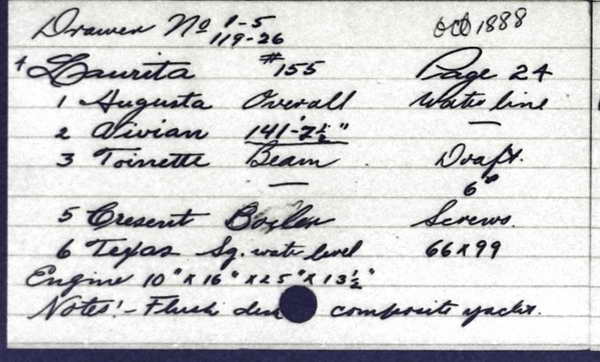 Drawer No 1-5 Oct 1888
119-26
4 Laurita #155 Page 24
1 Augusta Overall Water line
2 Vivian 141'-7½" —
3 Toinette Beam Draft.
— 6'
5 Cresent Boiler Screws.
6 Texas Sq. water level 66x99
Engine 10" x 16" x 25" x 13½"
Notes:- Flush composite yacht.